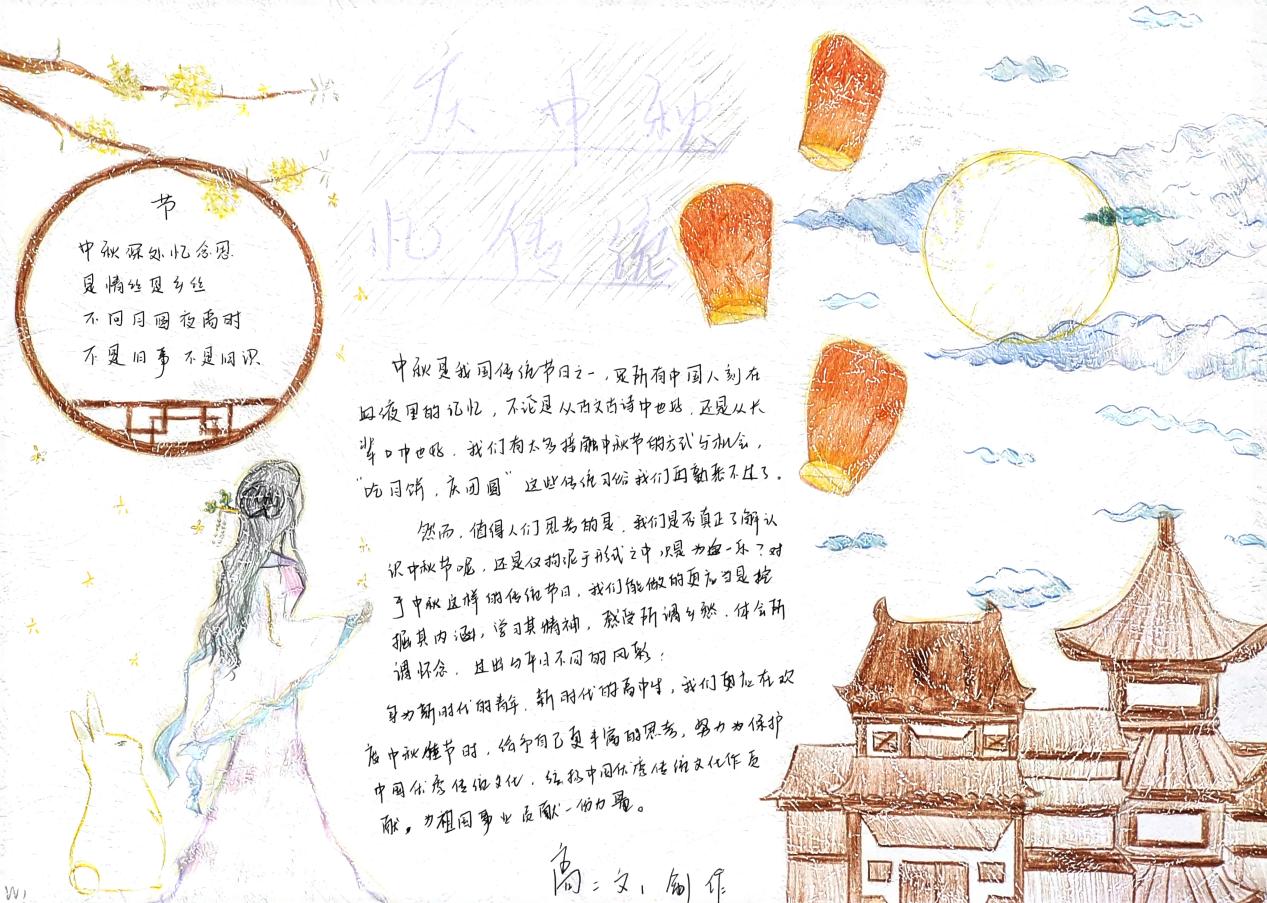 庆中秋
忆传统
节
中秋深处忆念思
是情丝是乡丝
不问月圆夜离时
不是旧事 不是旧识
中秋是我国传统节日之一,是所有中国人刻在
血液里的记忆,不论是从古文古诗中也好,还是从长
辈口中也好,我们有太多接触中秋节的方式与机会,
“吃月饼,庆团圆”这些传统习俗我们再熟悉不过了。
然而,值得人们思考的是,我们是否真正了解认
识中秋节呢,还是仅拘泥于形式之中 只是为一乐?对
于中秋这样的传统节日,我们能做的更应当是挖
掘其内涵,学习其精神,感受所谓乡愁,体会所
谓怀念,过出与平日不同的风彩!
身为新时代的青年,新时代的高中生,我们更应在欢
度中秋佳节时,给予自己更丰富的思考,努力为保护
中国优秀传统文化,弘扬中国优秀传统文化作贡
献。为祖国事业贡献一份力量。
高二文1 创作